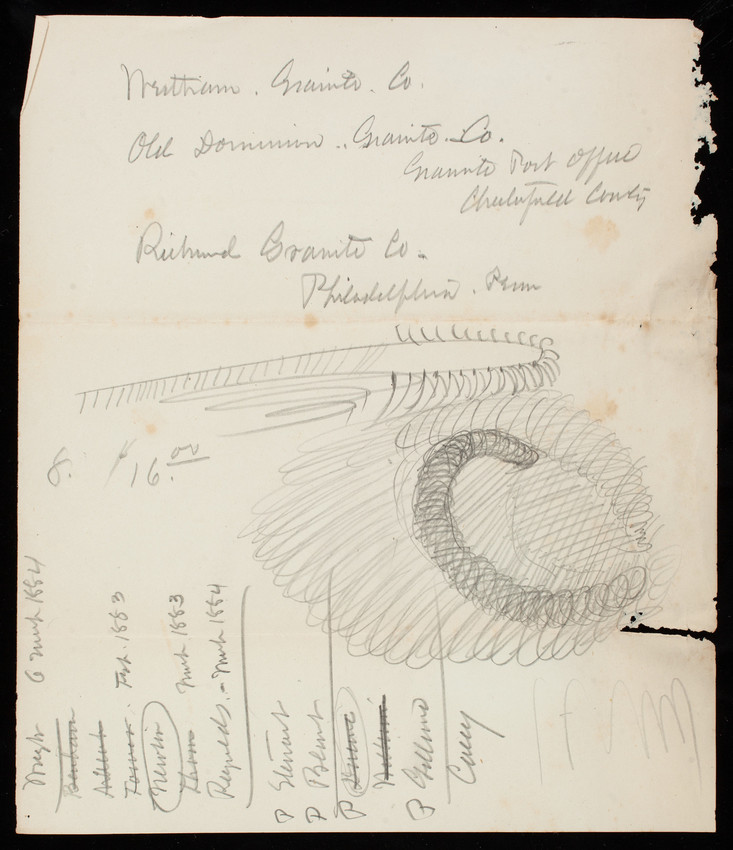 Westham. Granite. Co.
Old Dominion.. Granite. Co.
Granite Post Office
Chesterfield County
Richmond Granite Co.
Philadelphia. Penn
8. 16.00
Wright 6 Mch 1884
Benham
Abbot
Tower. Feb. 1883
Newton
Thom Mch 1883
Reynolds. - Mch 1884
P Stewart
P Blunt
P
P Gillmore
Casey